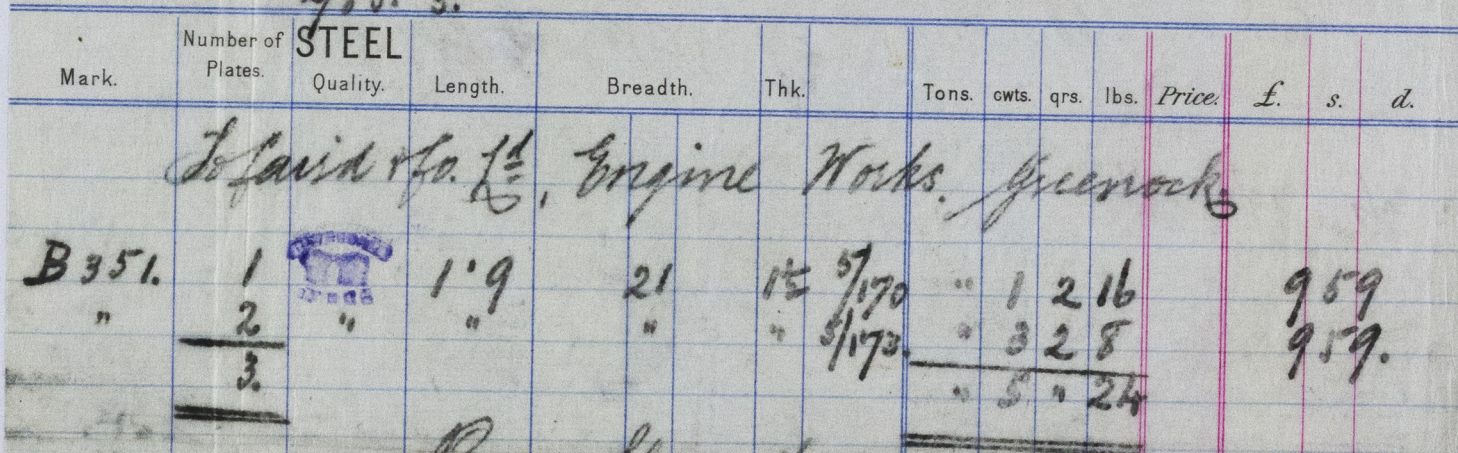 Mark. Number of Plates. STEEL Quality. Length. Breadth. Thk. Tons. cwts. qrs. lbs. Price. £. s. d.
To Caird & Co. Ld, Engine Works. Greenock
B 351. 1 1' 9 21 5/170 " 1 2 16 959
" 2 " " " " 5/173. " 3 2 8 959.
3. " 5 " 24